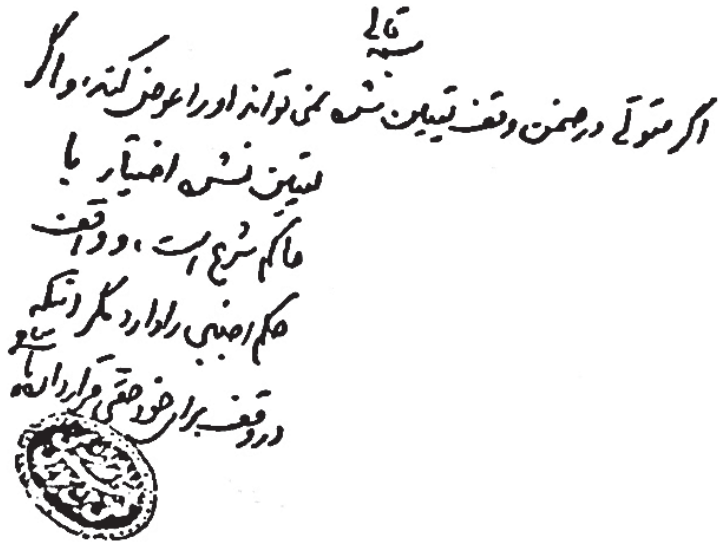 بسمه تعالی
اگر متولی در ضمن وقف تعیین شده نمی تواند او را عوض کند، و اگر
تعیین نشده اختیار با
حاکم شرع است، و واقف
حکم اجنبی را دارد مگر اینکه
در وقف برای خود حقی قرار داده باشد